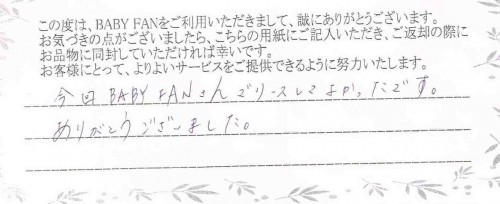 この度は、BABY FANをご利用いただきまして、誠にありがとうございます。
お気づきの点がございましたら、こちらの用紙にご記入いただき、ご返却の際に
お品物に同封していただければ幸いです。
お客様にとって、よりよいサービスをご提供できるように努力いたします。
今回BABY FANさんでリースしてよかったです。
ありがとうございました。